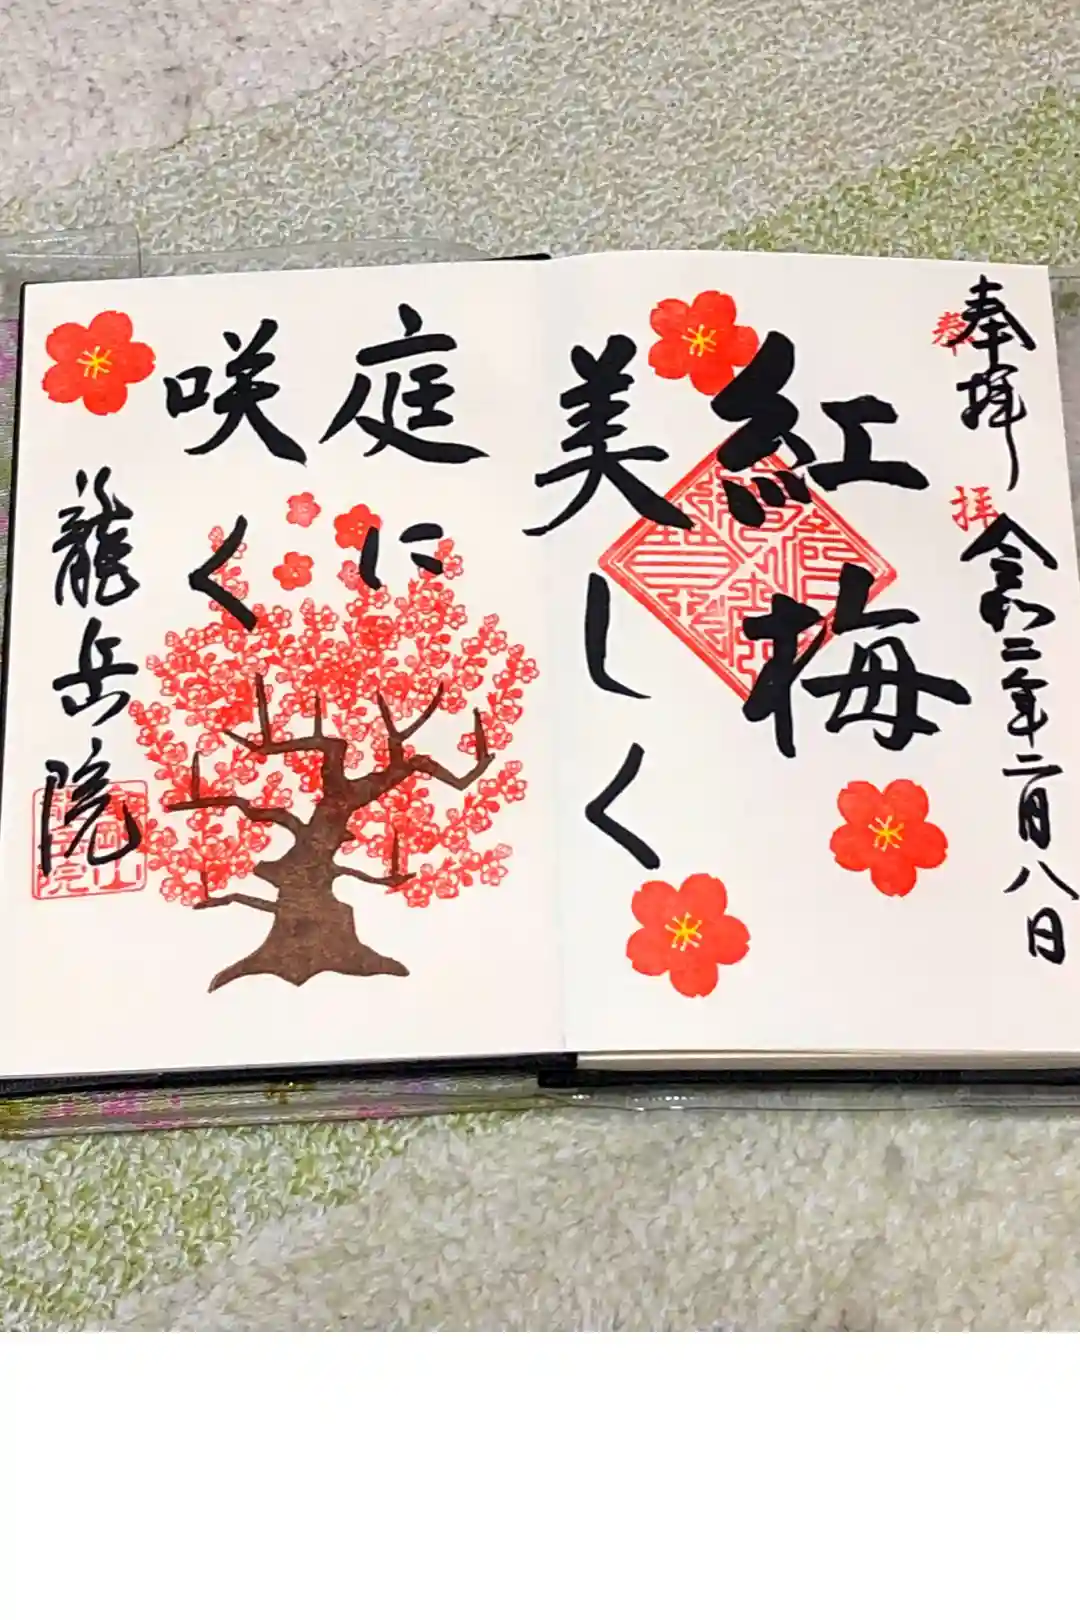 奉拝
奉
拝
令和二年二月八日
紅梅
美しく
庭に
咲く
龍岳院